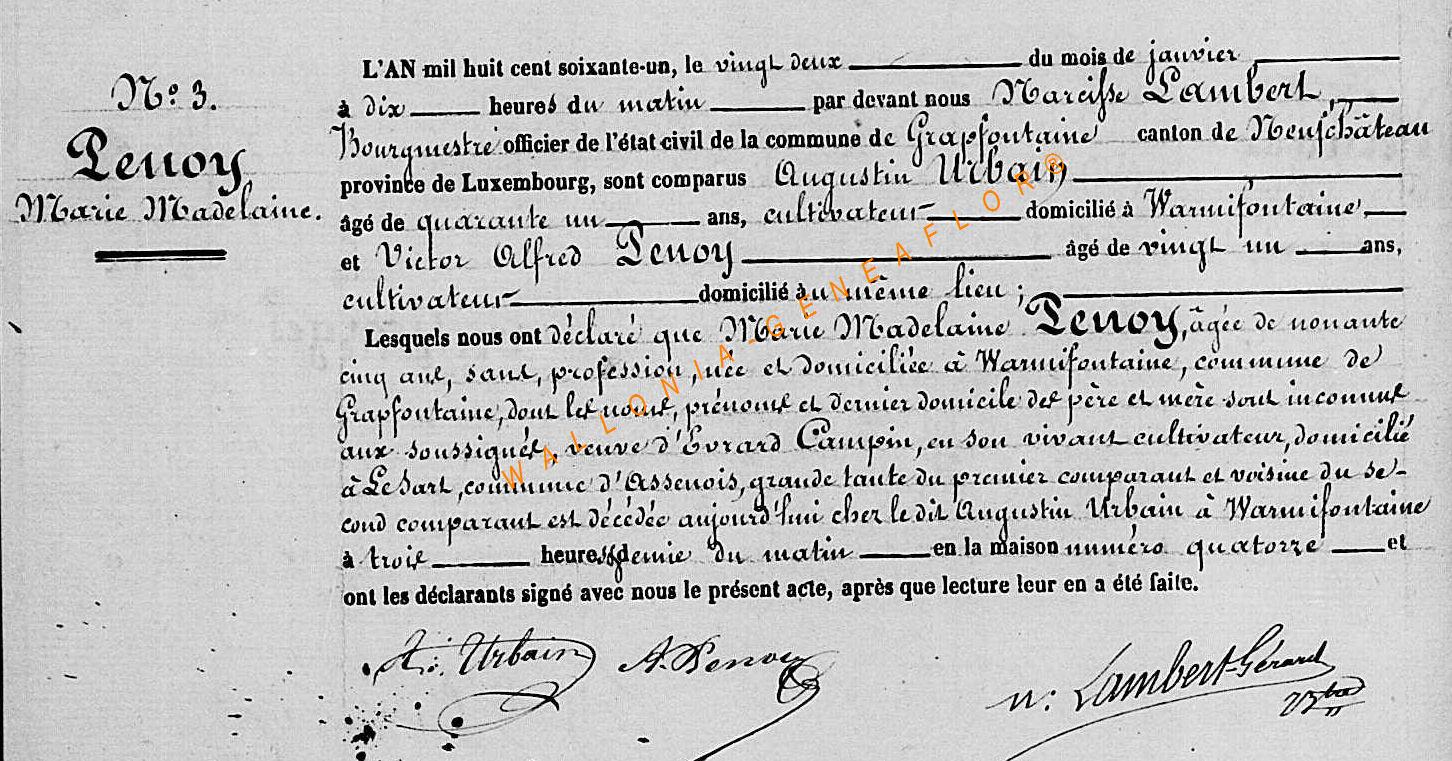 N.º 3.
Penoy
Marie Madelaine.
L'AN mil huit cent soixante-un, le vingt deux du mois de janvier
à dix heures du matin par devant nous Narcisse Lambert,
Bourgmestre officier de l'état civil de la commune de Grapfontaine canton de Neufchâteau
province de Luxembourg, sont comparus Augustin Urbain
âgé de quarante un ans, cultivateur domicilié à Warmifontaine,
et Victor Alfred Penoy âgé de vingt un ans,
cultivateur domicilié au même lieu ;
Lesquels nous ont déclaré que Marie Madelaine Penoy, âgée de nonante
cinq ans, sans, profession, née et domiciliée à Warmifontaine, commune de
Grapfontaine, dont les noms, prénoms et dernier domicile des père et mère sont inconnus
aux soussignés, veuve d'Evrard Campin, en son vivant cultivateur, domicilié
à Le Sart, commune d'Assenois, grande tante du premier comparant et voisine du se-
cond comparant est décédée aujourd'hui chez le dit Augustin Urbain à Warmifontaine
à trois heures & demie du matin en la maison numéro quatorze et
ont les déclarants signé avec nous le présent acte, après que lecture leur en a été faite.
A: Urbain A. Penoy n: Lambert-Gérard
Bgtre
WALLONIA-GENEAFLOR®